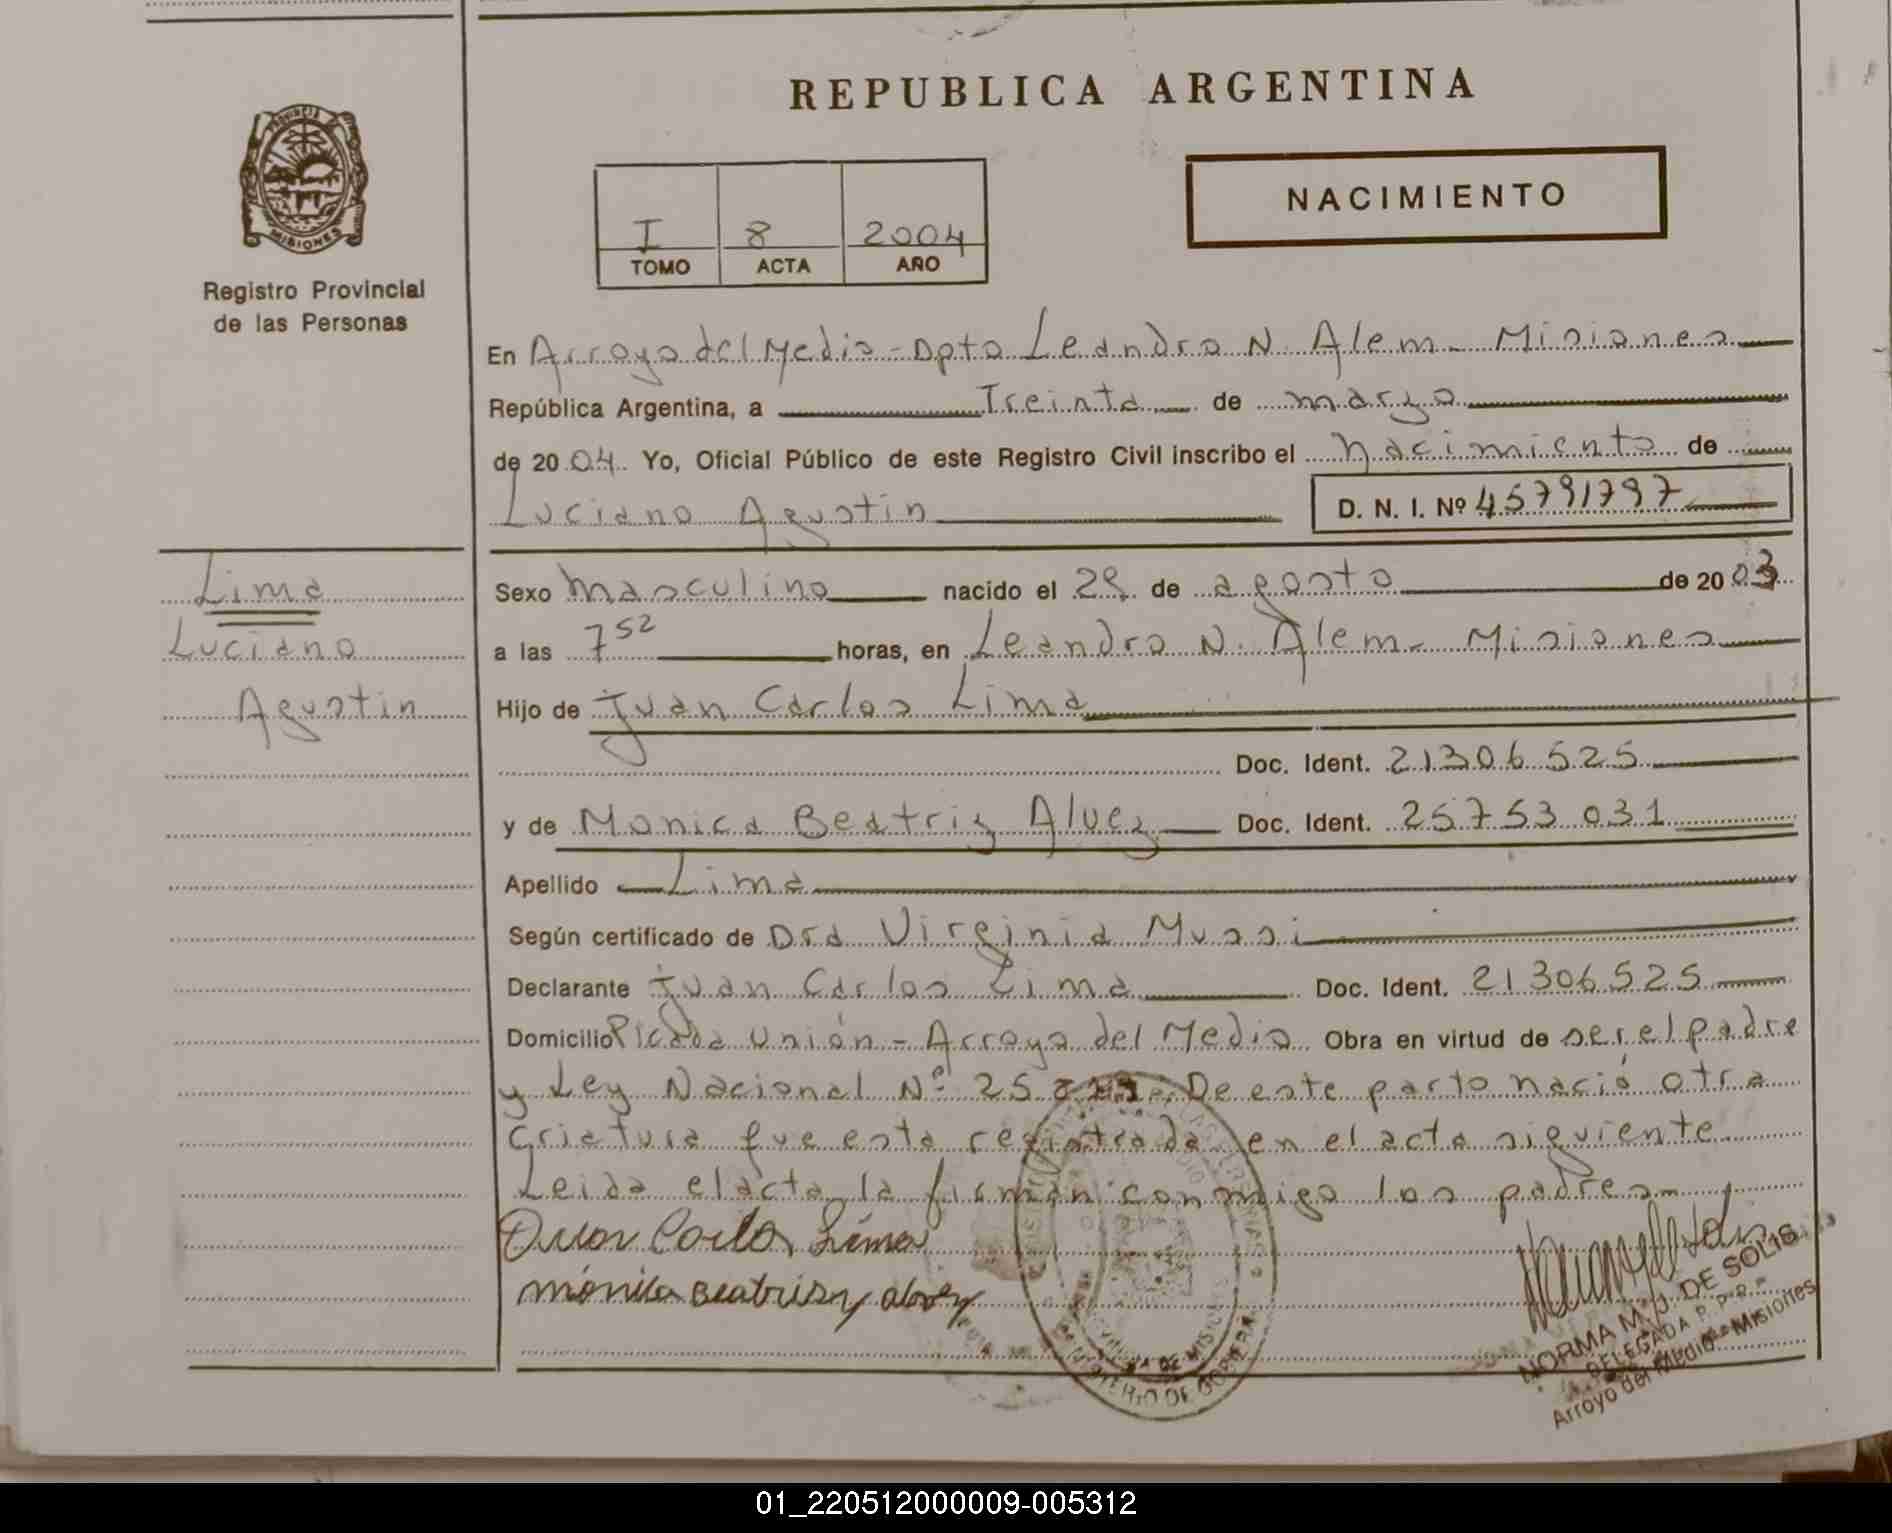 REPUBLICA ARGENTINA
PROVINCIA DE
MISIONES
Registro Provincial
de las Personas
NACIMIENTO
I 8 2004
TOMO ACTA AÑO
En Arroyo del Medio - Dpto Leandro N. Alem - Misiones
República Argentina, a Treinta de marzo
de 2004. Yo, Oficial Público de este Registro Civil inscribo el nacimiento de
Luciano Agustin D. N. I. Nº 45791797
Lima
Luciano
Agustin
Sexo masculino nacido el 29 de agosto de 2003
a las 7 52 horas, en Leandro N. Alem - Misiones
Hijo de Juan Carlos Lima
Doc. Ident. 21306525
y de Monica Beatriz Alvez Doc. Ident. 25753031
Apellido Lima
Según certificado de Dra Virginia Mussi
Declarante Juan Carlos Lima Doc. Ident. 21306525
Domicilio Picada Unión - Arroyo del Medio Obra en virtud de ser el padre
y Ley Nacional Nº 25 De este parto nació otra
criatura que esta registrada en el acta siguiente
Leida el acta la firman conmigo los padres
Juan Carlos Lima
mónica Beatriz alvez
NORMA M. J. DE SOLIS
DELEGADA R. P. P.
Arroyo del Medio - Misiones
MINISTERIO DE GOBIERNO
01_220512000009-005312